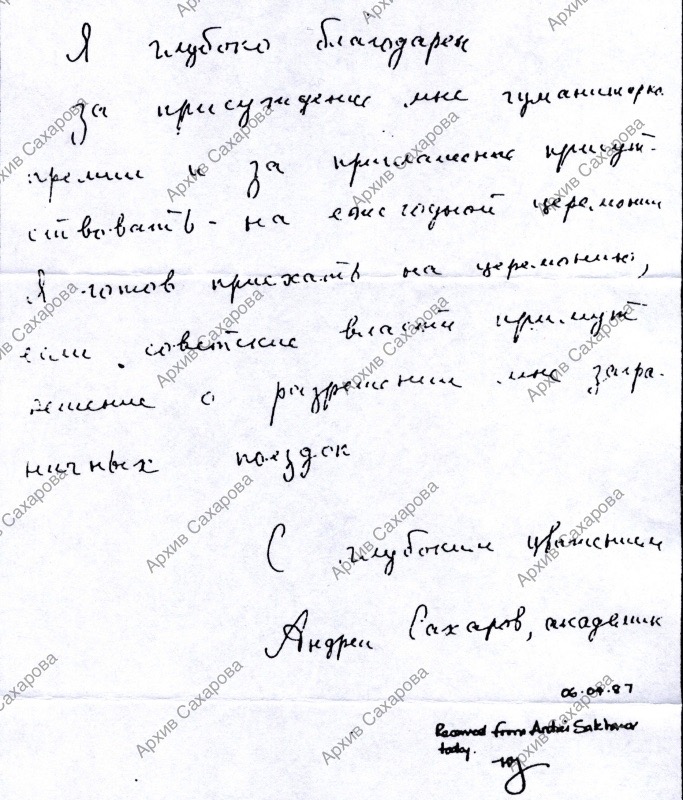 Я глубоко благодарен
за присуждение мне гуманитарн.
премии и за приглашение присут-
ствовать на ежегодной церемонии
Я готов приехать на церемонию,
если советские власти примут
решение о разрешении мне загра-
ничных поездок
С глубоким уважением
Андрей Сахаров, академик
06.04.87
Received from Andrei Sakharov
today.
Архив Сахарова